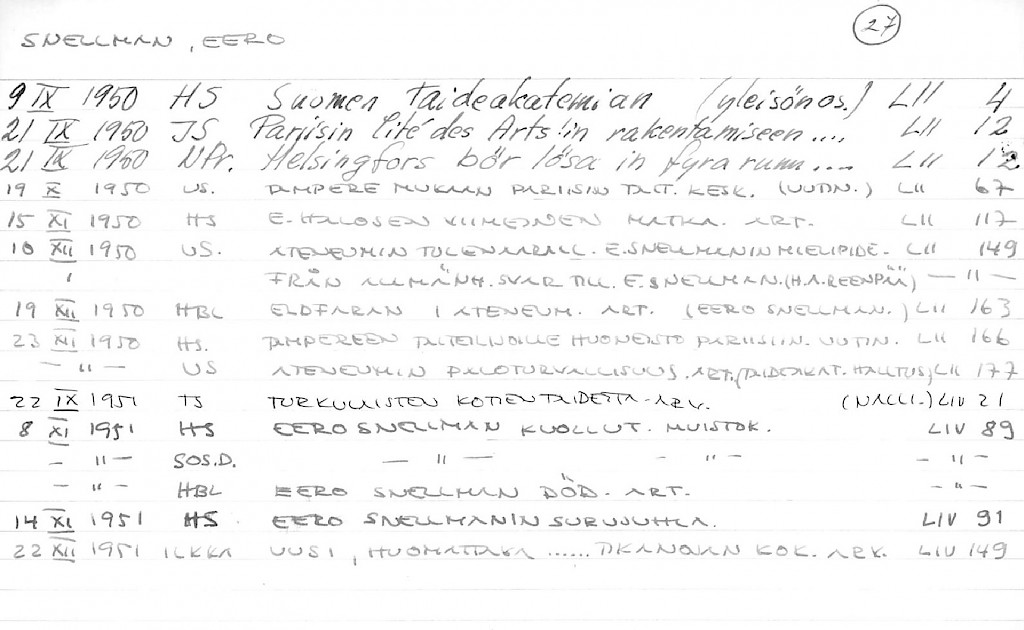 27
SNELLMAN, EERO
9 IX 1950 HS Suomen Taideakatemian (yleisönos.) LII 4
21 IX 1950 JS Pariisin Cité des Arts'in rakentamiseen.... LII 12
21 IX 1950 NPr. Helsingfors bör lösa in fyra rum.... LII 12
19 X 1950 US. TAMPERE MUKAAN PARIISIN TAIT. KESK. (UUTIN.) LII 67
15 XI 1950 HS E. HALOSEN VIIMEINEN MATKA. ART. LII 117
10 XII 1950 US. ATENEUMIN TULENARALL. E. SNELLMANIN MIELIPIDE. LII 149
" FRÅN ALLMÄNH. SVAR TILL. E. SNELLMAN. (H.A. REENPÄÄ) — " —
19 XII 1950 HBL ELDFARAN I ATENEUM. ART. (EERO SNELLMAN.) LII 163
23 XII 1950 HS. TAMPEREEN TAITEILIJOILLE HUONEISTO PARIISIIN. UUTIN. LII 166
— " — US ATENEUMIN PALOTURVALLISUUS. ART. (TAIDEAKAT. HALLITUS) LII 177
22 IX 1951 TS TURKULAISTEN KOTIEN TAIDETTA - ARV. (NALLI.) LIV 21
8 XI 1951 HS EERO SNELLMAN KUOLLUT. MUISTOK. LIV 89
— " — SOS.D. — " — — " — — " —
— " — HBL EERO SNELLMAN DÖD. ART. — " —
14 XI 1951 HS EERO SNELLMANIN SURUJUHLA. LIV 91
22 XII 1951 ILKKA UUSI, HUOMATTAVA ...... TIKANOJAN KOK. ARV. LIV 149